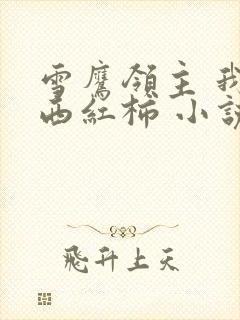 雪鹰領主 我
西紅柿 小說
飛升上天